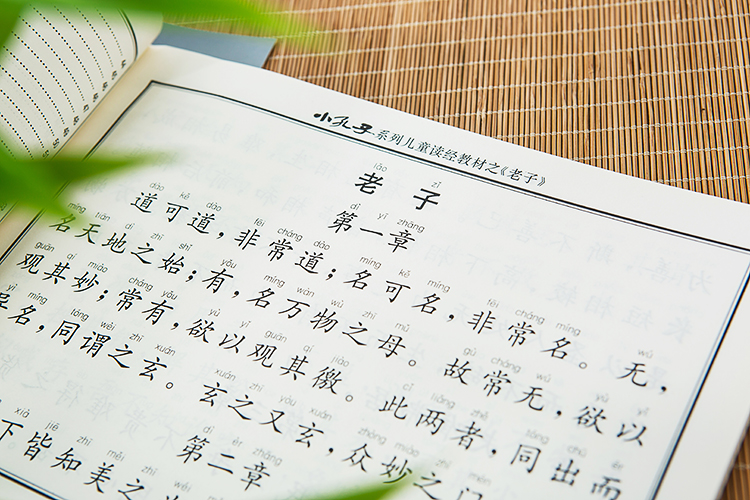 小孔子系列儿童读经教材之《老子》
lǎo zǐ
老子
dì yī zhāng
第一章
dào kě dào fēi cháng dào míng kě míng fēi cháng míng wú
道可道，非常道；名可名，非常名。无，
míng tiān dì zhī shǐ yǒu míng wàn wù zhī mǔ gù cháng wú yù yǐ
名天地之始；有，名万物之母。故常无，欲以
guān qí miào cháng yǒu yù yǐ guān qí jiào cǐ liǎng zhě tóng chū ér
观其妙；常有，欲以观其徼。此两者，同出而
yì míng tóng wèi zhī xuán xuán zhī yòu xuán zhòng miào zhī mén
异名，同谓之玄。玄之又玄，众妙之门
dì èr zhāng
第二章
xià jiē zhī měi zhī
下皆知美之